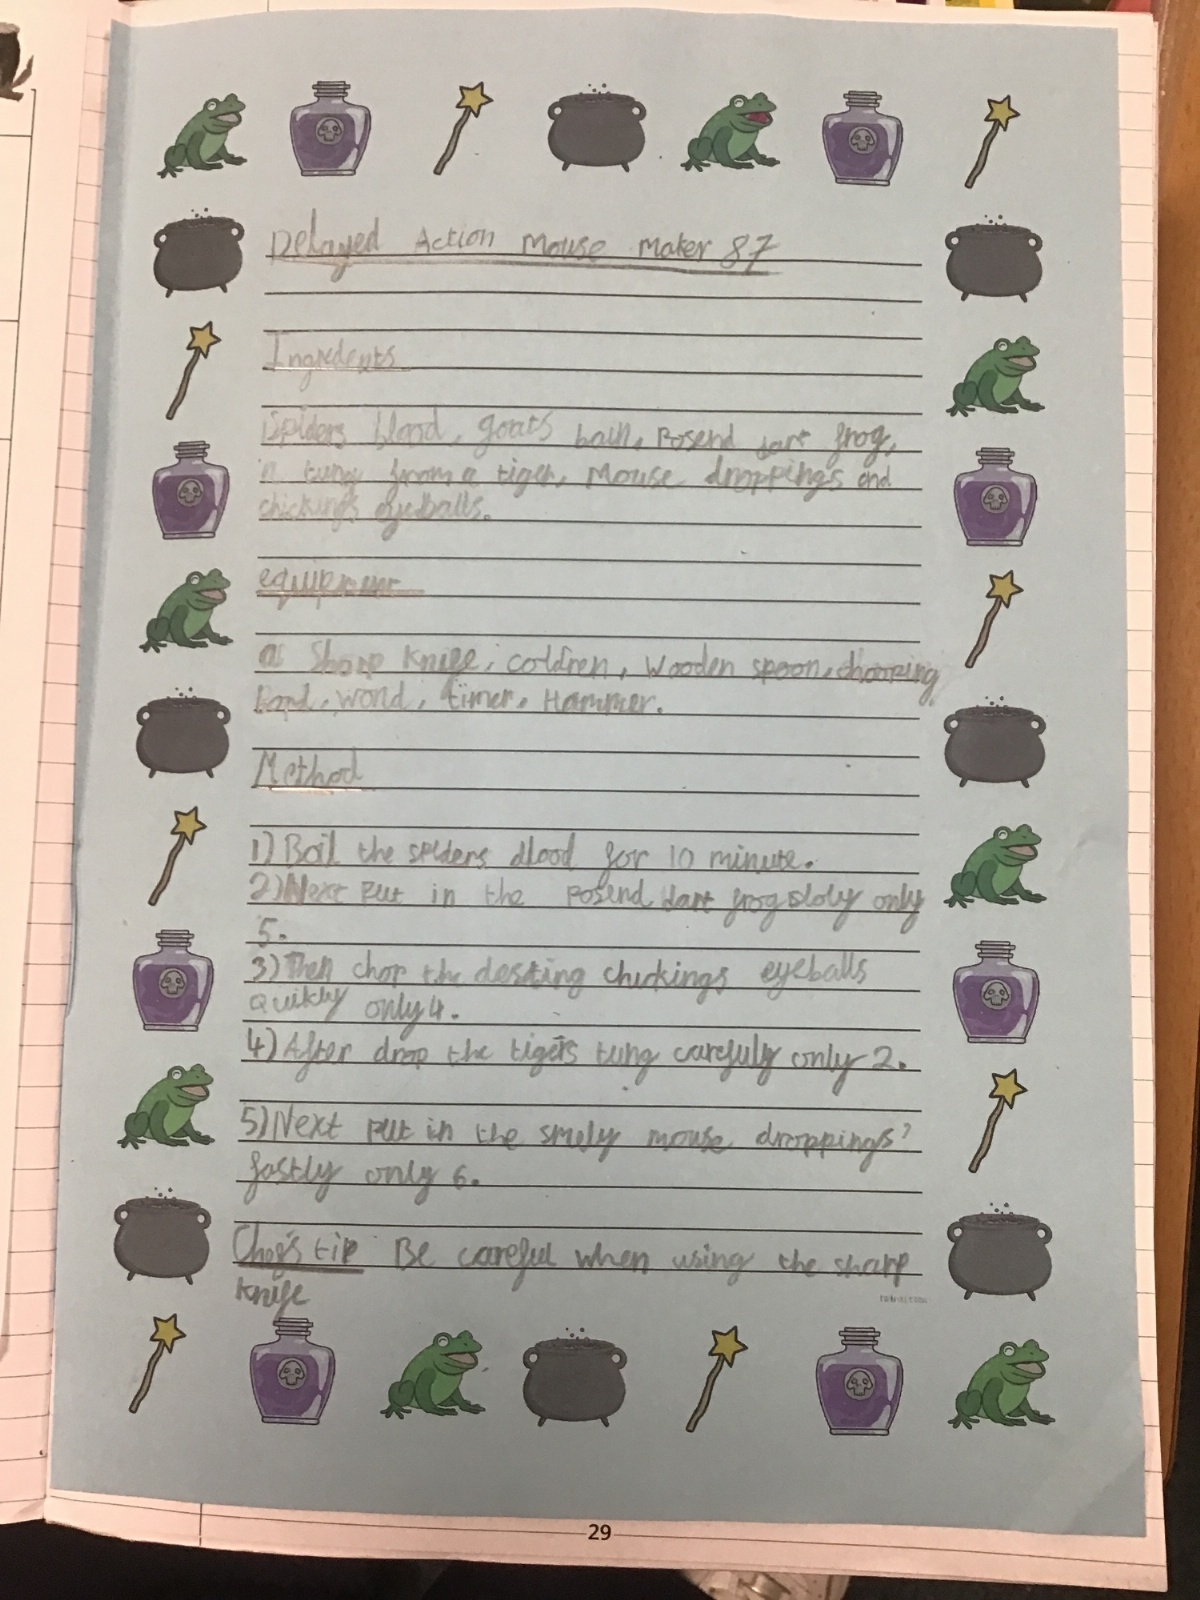 Delayed Action Mouse Maker 87
Ingredents
Spiders blood, goats bain, Posend dart frog,
a tung from a tiger, Mouse droppings and
chickings eyeballs.
equipment
a Sharp Knife, coldren, Wooden spoon, chopping
Bord, wond, timer, Hammer.
Method
1) Boil the spiders dlood for 10 minute.
2) Next put in the Posend dart frog sloly only
5.
3) Then chop the chickings eyeballs
quikly only 4.
4) After drop the tigers tung carefuly only 2.
5) Next put in the smely mouse droppings
fastly only 6.
Chef's tip Be careful when using the sharp
knife
29